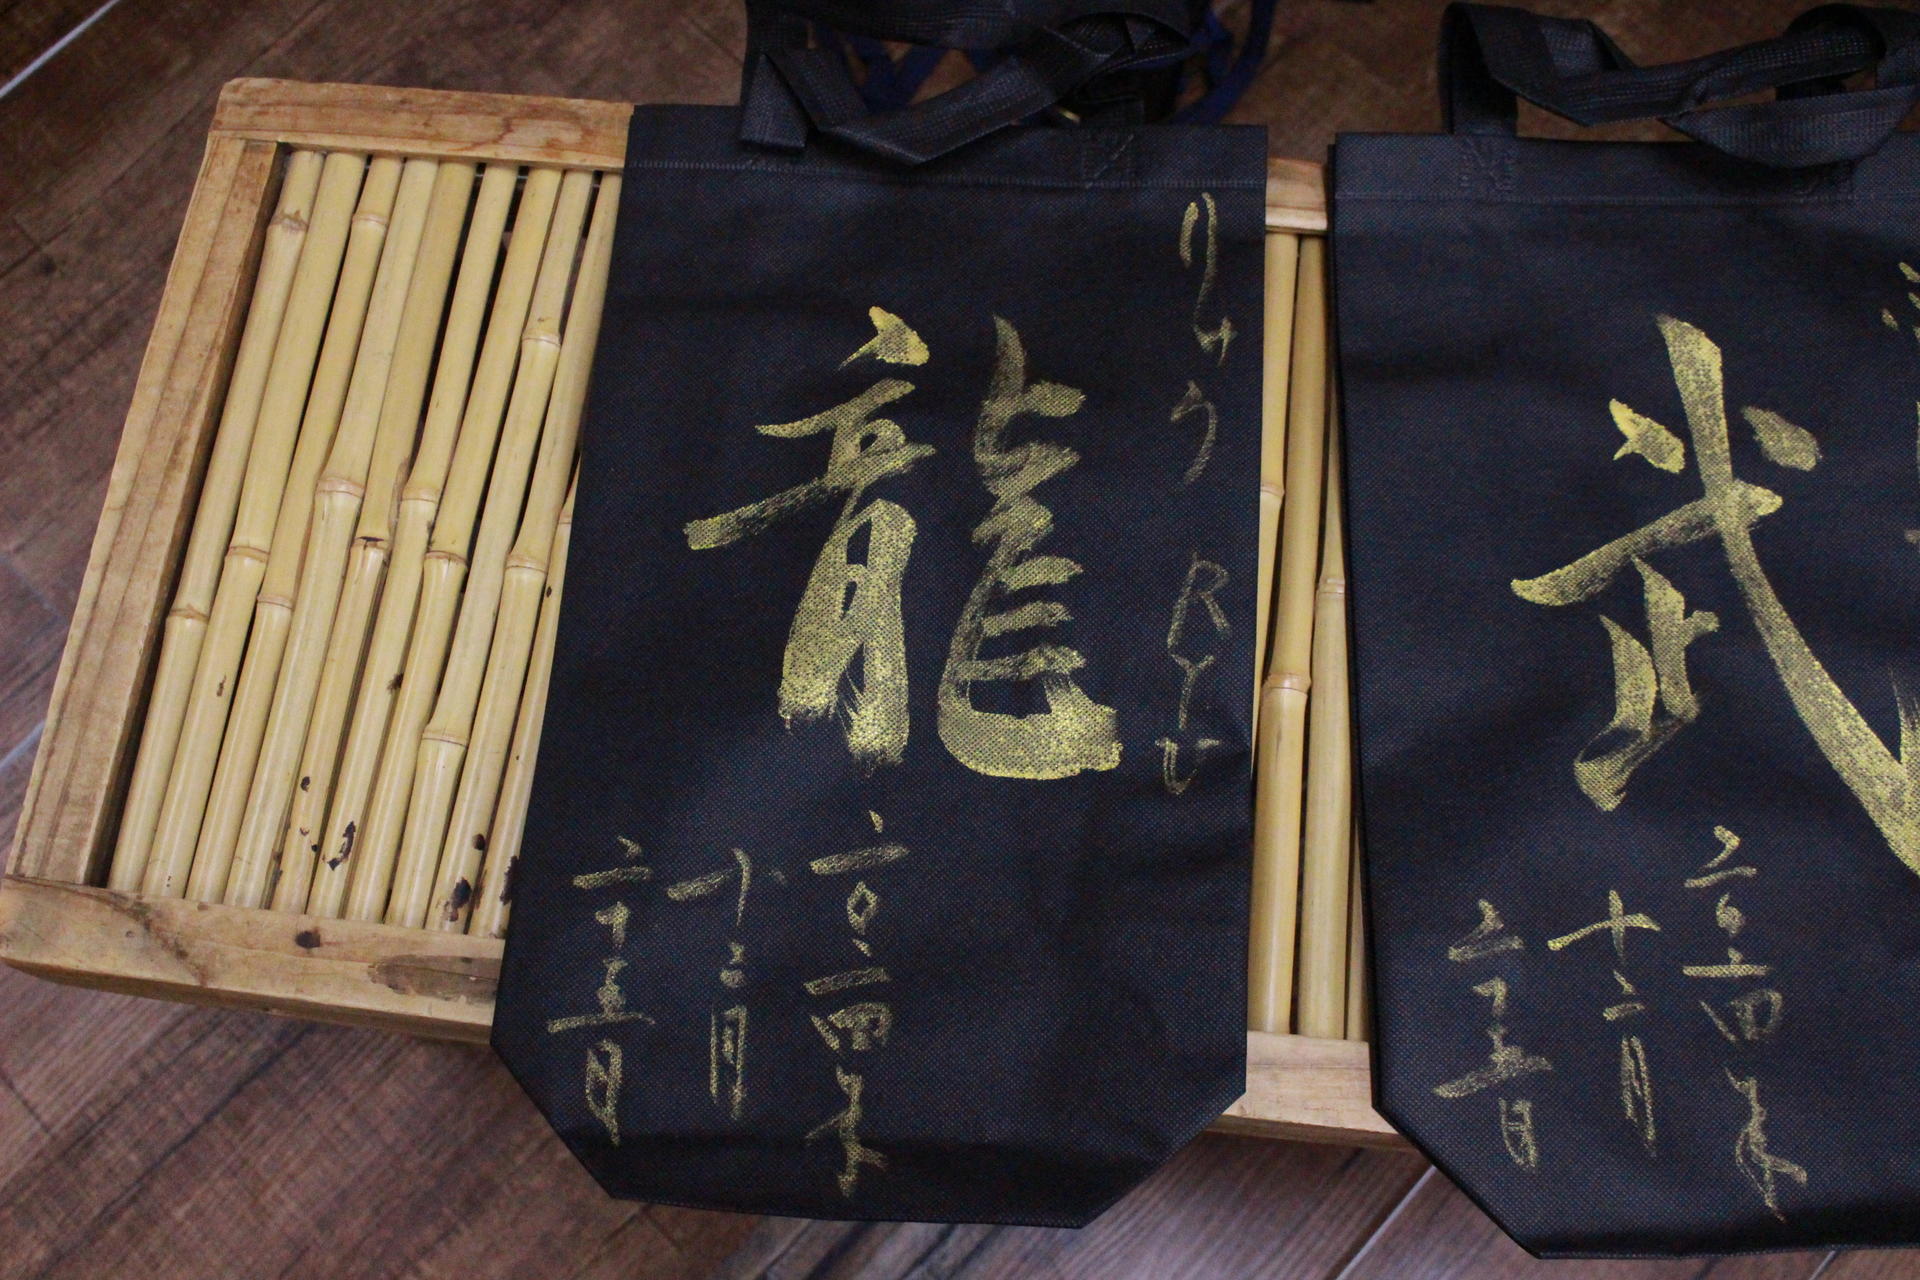 りゅう RYU
龍
二〇二四年
十二月
二十五日
武
二〇二四年
十二月
二十五日